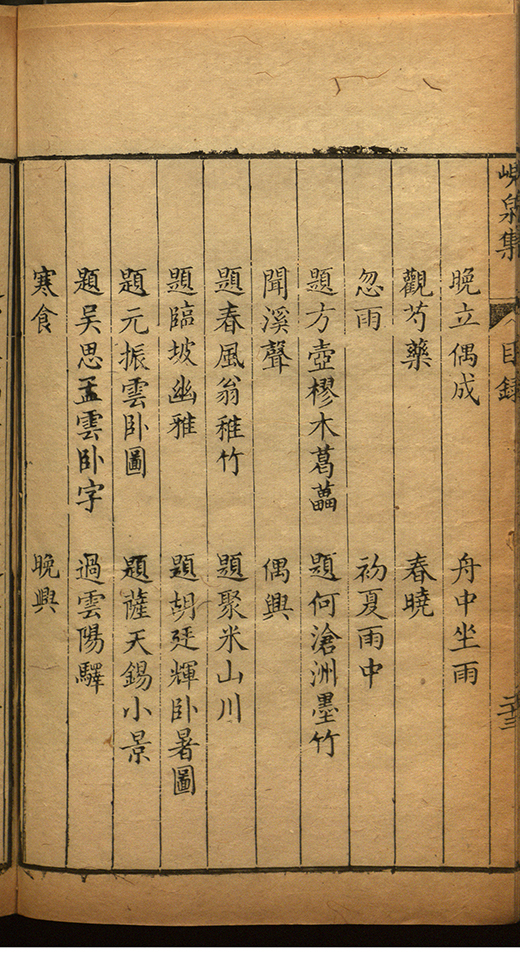 峴泉集
目錄
晚立偶成 舟中坐雨
觀芍藥 春曉
忽雨 初夏雨中
題方壺樛木葛藟 題何滄洲墨竹
聞溪聲 偶興
題春風翁稚竹 題聚米山川
題臨坡幽雅 題胡廷輝卧暑圖
題元振雲卧圖 題薩天錫小景
題吴思孟雲卧字 過雲陽驛
寒食 晚興